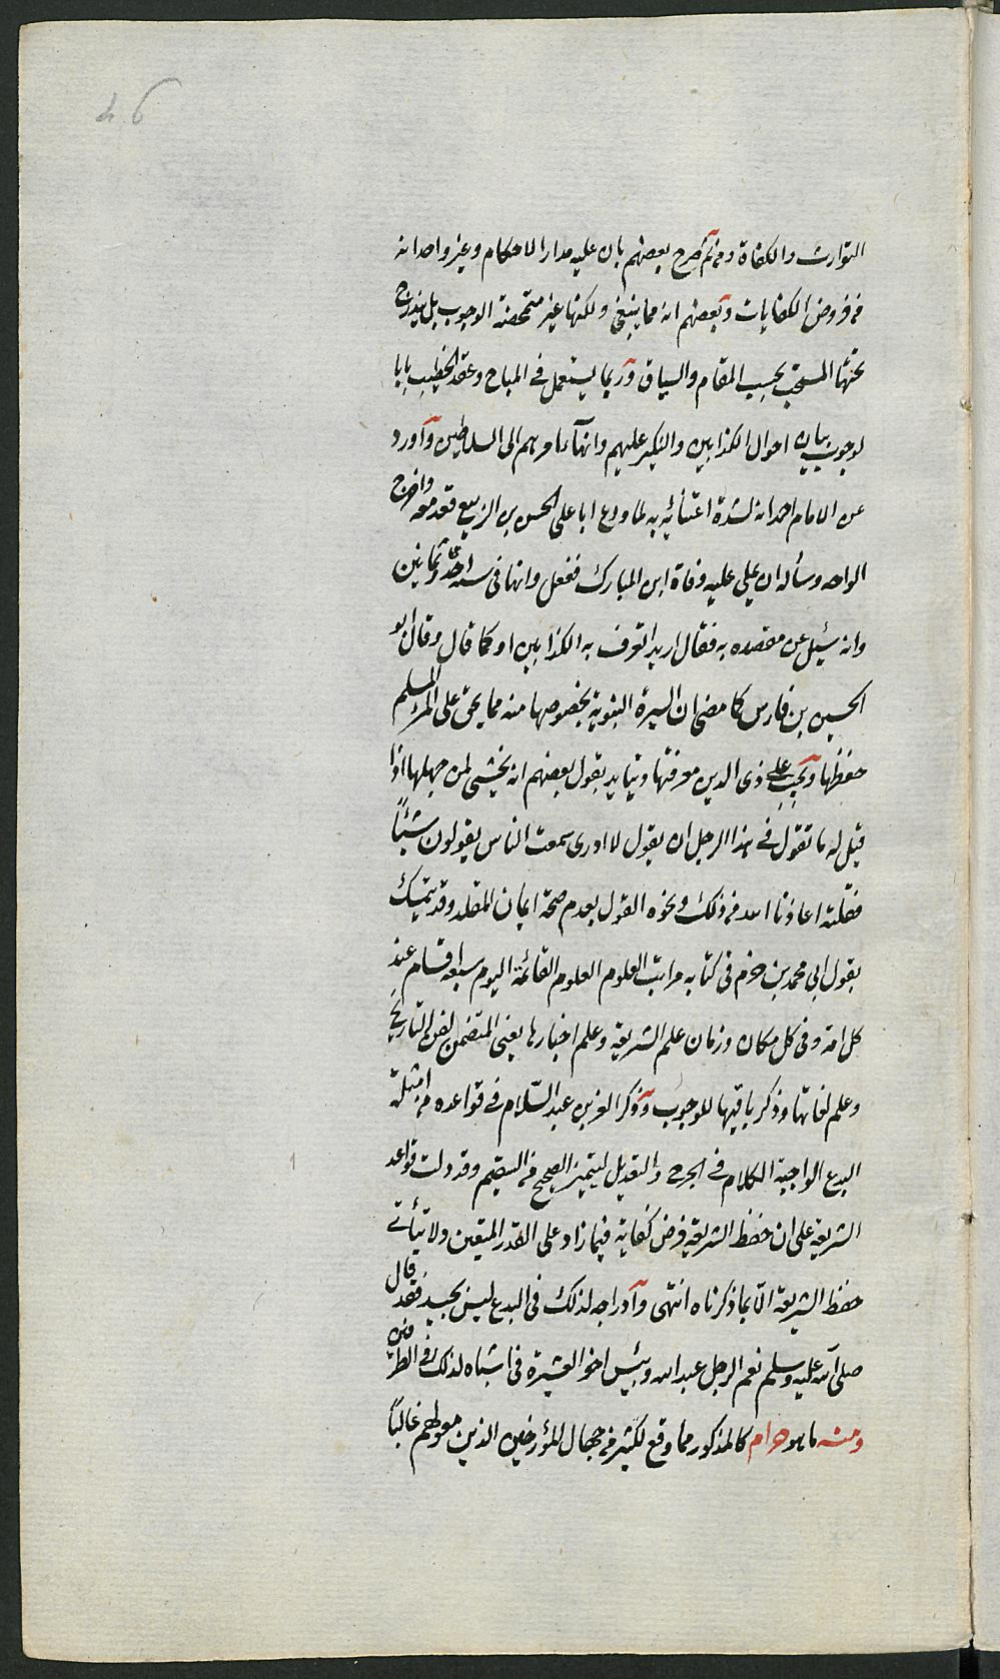 46
التوارث والكفاة ومن ثم صرح بعضهم بان عليه مدار الاحكام وغير واحد انه
من فروض الكفايات وبعضهم انه مما ينبغي ولكنها غير متمحضة الوجوب بل يندرج
تحتها المستحب بحسب المقام والسياق وربما يستعمل في المباح وعقد الخطيب بابا
لوجوب بيان احوال الكذابين والنكير عليهم وانهآء امرهم الى السلاطين وآورد
عن الامام احمد انه لشدة اعتنائه به لما ودع ابا علي الحسن بن الربيع قعد معه واخرج
الواحه وسأله ان يملي عليه وفاة ابن المبارك ففعل وانها في سنه احدى وثمانين
وانه سئيل عن مقصده به فقال اريد التعرف به الكذابين او كما قال وقال ابو
الحسين بن فارس كما مضى ان السيرة النبوية بخصوصها منه مما يحق على المرء المسلم
حفظها ويجب على ذي الدين معرفتها ويتايد بقول بعضهم انه يخشى لمن جهلها اذا
قيل له ما تقول في هذا الرجل ان يقول لا ادري سمعت الناس يقولون شيئاً
فقلته اعاذنا الله من ذلك ونحوه القول بعدم صحة ايمان المقلد وقد يتمسك
بقول ابي محمد بن حزم في كتابه مراتب العلوم العلوم القائمة اليوم سبعة اقسام عند
كل امة وفي كل مكان وزمان علم الشريعة وعلم اخبارها يعني المتضمن لفن التاريخ
وعلم لغاتها وذكر باقيها للوجوب وذكر العز بن عبد السّلام في قواعده من امثلة
البدع الواجبة الكلام في الجرح والتعديل ليتميز الصحيح من السقيم وقد دلت قواعد
الشريعة على ان حفظ الشريعة فرض كفاية فيما زاد على القدر المتعين ولا يتأتى
حفظ الشريعة الّا بما ذكرناه انتهى وآدراجه لذلك في البدع ليس بجيد فقد قال
صلى الله عليه وسلم نعم الرجل عبد الله وبئس اخو العشيرة في اشباه لذلك في الطرفين
ومنه ما هو حرام كالمذكور مما وقع لكثير من جهال المؤرخين الذين معولهم غالباً